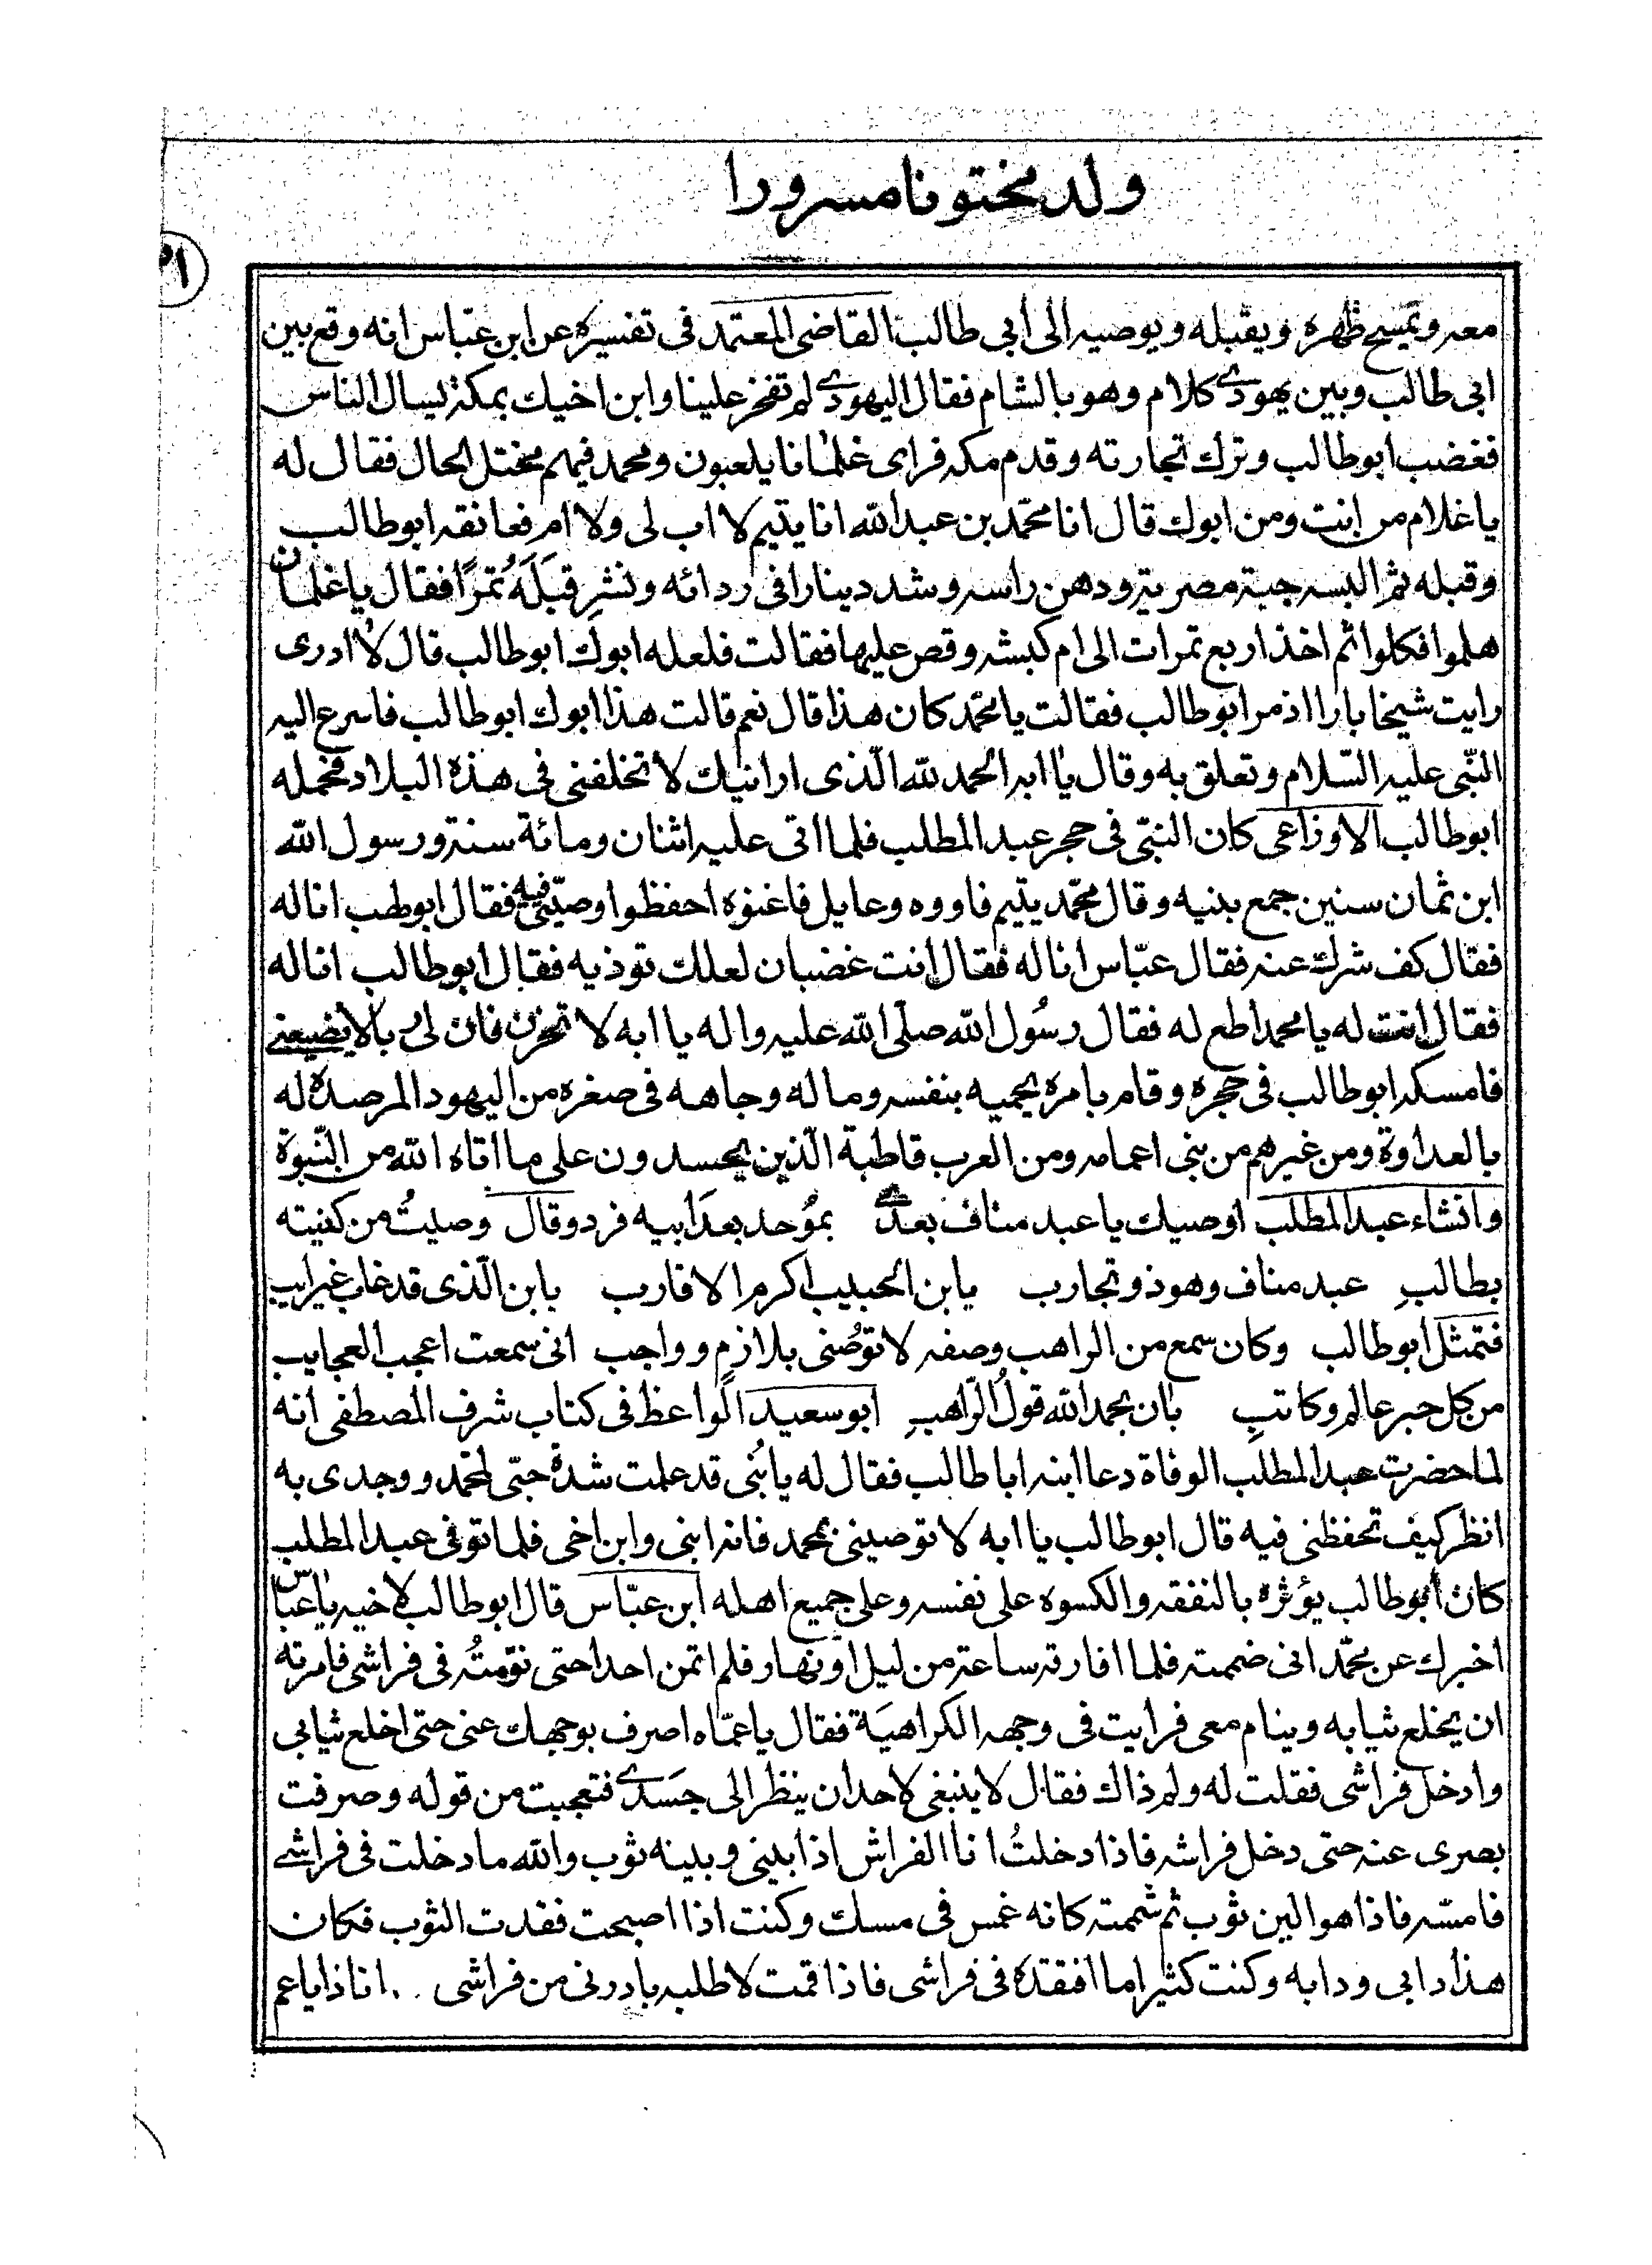 ولد مختونا مسرورا
معه ويمسح ظهره ويقبله ويوصيه الى ابى طالب القاضى المعتمد فى تفسيره عن ابن عبّاس انه وقع بين
ابى طالب وبين يهودى كلام وهو بالشام فقال اليهودى لم تفخر علينا وابن اخيك بمكة يسال الناس
فغضب ابوطالب وترك تجارته وقدم مكه فراى غلمانا يلعبون ومحمد فيهم مختل الحال فقال له
يا غلام من انت ومن ابوك قال انا محمّد بن عبدالله انا يتيم لا اب لى ولا ام فعانقه ابوطالب
وقبله ثم البسه جبة مصرية ودهن راسه وشد دينارا فى ردائه ونشر قِبَلَهُ تمرًا فقال يا غلمان
هلموا فكلوا ثم اخذ اربع تمرات الى ام كبشه وقص عليها فقالت فلعله ابوك ابوطالب قال لا ادرى
رايت شيخا بارا اذ مر ابوطالب فقالت يا محمّد كان هذا قال نعم قالت هذا ابوك ابوطالب فاسرع اليه
النّبى عليه السّلام وتعلق به وقال يا ابه الحمد لله الّذى ارانيك لا تخلفنى فى هذه البلاد فحمله
ابوطالب الاوزاعى كان النبىّ فى حجر عبد المطلب فلما اتى عليه اثنان ومائة سنة ورسول الله
ابن ثمان سنين جمع بنيه وقال محمّد يتيم فاووه وعايل فاغنوه احفظوا وصيّتى فيه فقال ابولهب انا له
فقال كف شرك عنه فقال عبّاس انا له فقال انت غضبان لعلك توذيه فقال ابوطالب انا له
فقال انت له يا محمد اطع له فقال رسُول الله صلّى الله عليه واله يا ابه لا تحزن فان لى ربا لا يضيعنى
فامسكه ابوطالب فى حجره وقام بامره يحميه بنفسه وماله وجاهه فى صغره من اليهود المرصدة له
بالعداوة ومن غيرهم من بنى اعمامه ومن العرب قاطبة الّذين يحسدون على ما اتاه الله من النّبوة
وانشاء عبد المطلب اوصيك يا عبد مناف بعدى بموُحد بعدَ ابيه فرد وقال وصيتُ من كنيته
بطالبِ عبد مناف وهو ذو تجارب يابن الحبيب اكرم الاقارب يابن الّذى قد غاب غير ايب
فتمثل ابوطالب وكان سمع من الراهب وصفه لا توصُنى بلازم وواجب انى سمعت اعجب العجايب
من كل حبر عالم وكاتبِ بان بحمد الله قولُ الرّاهبِ ابوسعيد الواعظ فى كتاب شرف المصطفى انه
لما حضرت عبد المطلب الوفاة دعا ابنه ابا طالب فقال له يا بُنى قد علمت شدة حبّى لمحمّد ووجدى به
انظر كيف تحفظنى فيه قال ابوطالب يا ابه لا توصينى بمحمد فانه ابنى وابن اخى فلما توفى عبد المطلب
كان ابوطالب يؤثره بالنفقه والكسوه على نفسه وعلى جميع اهله ابن عبّاس قال ابوطالب لاخيه يا عباس
اخبرك عن محمّد انى ضممته فلما افارقه ساعة من ليل او نهار فلم اتمن احدا حتى نوّمتُه فى فراشى فامرته
ان يخلع ثيابه وينام معى فرايت فى وجهه الكراهيَة فقال يا عمّاه اصرف بوجهك عنى حتى اخلع ثيابى
وادخل فراشى فقلت له ولم ذاك فقال لا ينبغى لاحد ان ينظر الى جَسَدى فتعجبت من قوله وصرفت
بصرى عنه حتى دخل فراشه فاذا دخلتُ انا الفراش اذا بينى وبينه ثوب والله ما دخلت فى فراشى
فامسّه فاذا هو الين ثوب ثم شممته كانه غمس فى مسك وكنت اذا اصبحت فقدت الثوب فكان
هذا دابى ودابه وكنت كثيرا ما افقده فى فراشى فاذا قمت لاطلبه بادرنى من فراشى .. انا ذا يا عم